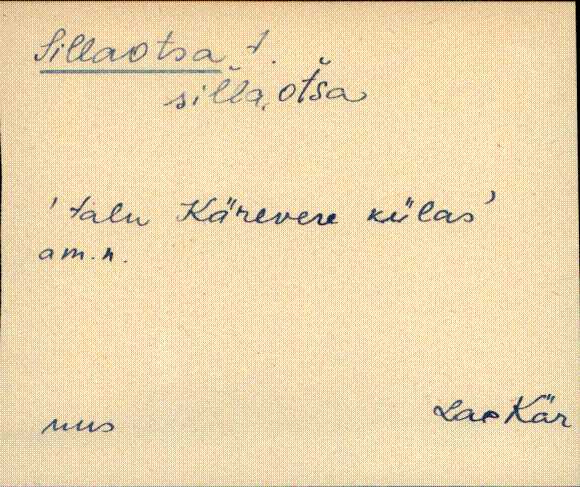 Sillaotsa t.
silla, otsa
'talu Kärevere külas'
am.n.
nus
Lae Kär